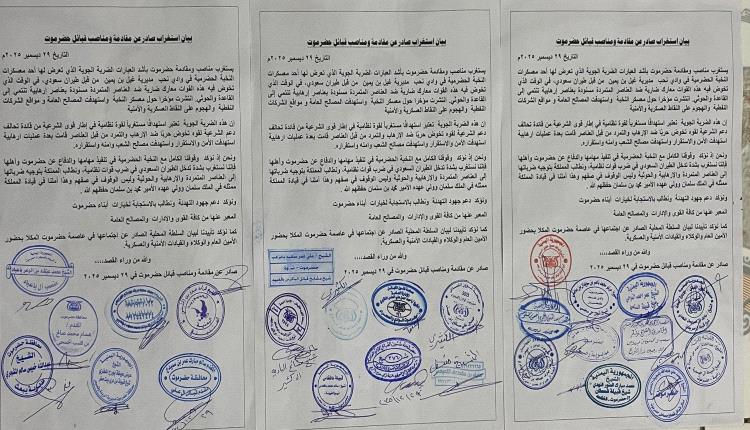 بيان استغراب صادر عن مقادمة ومناصب قبائل حضرموت
التاريخ ٢٩ ديسمبر ٢٠٢٥م
يستغرب مناصب ومقادمة حضرموت بأشد العبارات الضربة الجوية الذي تعرض لها أحد معسكرات
النخبة الحضرمية في وادي نحب مديرية غيل بن يمين من طيران سعودي، في الوقت الذي
تخوض فيه هذه القوات معارك ضارية ضد العناصر المتمردة مسنودة بعناصر إرهابية تنتمي إلى
القاعدة والحوثي، انتشرت مؤخرا حول معسكر النخبة واستهدفت المصالح العامة و مواقع الشركات
النفطية والهجوم على النقاط العسكرية والأمنية
إن هذه الضربة الجوية تعتبر استهدافاً مستغرباً لقوة نظامية في إطار قوى الشرعية من قائدة تحالف
دعم الشرعية لقوة تخوض حربًا ضد الإرهاب والتمرد من قبل عناصر قامت بعدة عمليات ارهابية
استهدفت الأمن والاستقرار واستهدفت مصالح الشعب وامنه واستقراره.
ونحن إذ نؤكد وقوفنا الكامل مع النخبة الحضرمية في تنفيذ مهامها والدفاع عن حضرموت وأهلها
فإننا نستغرب بشدة تدخل الطيران السعودي في ضرب قوات نظامية، ونطالب المملكة بتوجيه ضرباتها
إلى العناصر المتمردة والإرهابية والحوثية وليس الوقوف في صفهم وهذا أملنا في قيادة المملكة
ممثله في الملك سلمان وولي عهده الأمير محمد بن سلمان حفظهم الله .
ونؤكد دعم جهود التهدئة ونطالب بالاستجابة لخيارات أبناء حضرموت
المعبر عنها من كافة القوى والإدارات والمصالح العامة
كما نؤكد تأييدنا لبيان السلطة المحلية الصادر عن اجتماعها في عاصمة حضرموت المكلا بحضور
الأمين العام والوكلاء والقيادات الأمنية والعسكرية.
والله من وراء القصد....
صادر عن مقادمة ومناصب قبائل حضرموت في ٢٩ ديسمبر ٢٠٢٥
الجمهورية اليمنية
الشيخ
بيان استغراب صادر عن مقادمة ومناصب قبائل حضرموت
التاريخ ٢٩ ديسمبر ٢٠٢٥م
يستغرب مناصب ومقادمة حضرموت بأشد العبارات الضربة الجوية الذي تعرض لها أحد معسكرات
النخبة الحضرمية في وادي نحب مديرية غيل بن يمين من طيران سعودي، في الوقت الذي
تخوض فيه هذه القوات معارك ضارية ضد العناصر المتمردة مسنودة بعناصر إرهابية تنتمي إلى
القاعدة والحوثي، انتشرت مؤخرا حول معسكر النخبة واستهدفت المصالح العامة و مواقع الشركات
النفطية والهجوم على النقاط العسكرية والأمنية
إن هذه الضربة الجوية تعتبر استهدافاً مستغرباً لقوة نظامية في إطار قوى الشرعية من قائدة تحالف
دعم الشرعية لقوة تخوض حربًا ضد الإرهاب والتمرد من قبل عناصر قامت بعدة عمليات ارهابية
استهدفت الأمن والاستقرار واستهدفت مصالح الشعب وامنه واستقراره.
ونحن إذ نؤكد وقوفنا الكامل مع النخبة الحضرمية في تنفيذ مهامها والدفاع عن حضرموت وأهلها
فإننا نستغرب بشدة تدخل الطيران السعودي في ضرب قوات نظامية، ونطالب المملكة بتوجيه ضرباتها
إلى العناصر المتمردة والإرهابية والحوثية وليس الوقوف في صفهم وهذا أملنا في قيادة المملكة
ممثله في الملك سلمان وولي عهده الأمير محمد بن سلمان حفظهم الله .
ونؤكد دعم جهود التهدئة ونطالب بالاستجابة لخيارات أبناء حضرموت
المعبر عنها من كافة القوى والإدارات والمصالح العامة
كما نؤكد تأييدنا لبيان السلطة المحلية الصادر عن اجتماعها في عاصمة حضرموت المكلا بحضور
الأمين العام والوكلاء والقيادات الأمنية والعسكرية.
والله من وراء القصد....
صادر عن مقادمة ومناصب قبائل حضرموت في ٢٩ ديسمبر ٢٠٢٥
بيان استغراب صادر عن مقادمة ومناصب قبائل حضرموت
التاريخ ٢٩ ديسمبر ٢٠٢٥م
يستغرب مناصب ومقادمة حضرموت بأشد العبارات الضربة الجوية الذي تعرض لها أحد معسكرات
النخبة الحضرمية في وادي نحب مديرية غيل بن يمين من طيران سعودي، في الوقت الذي
تخوض فيه هذه القوات معارك ضارية ضد العناصر المتمردة مسنودة بعناصر إرهابية تنتمي إلى
القاعدة والحوثي، انتشرت مؤخرا حول معسكر النخبة واستهدفت المصالح العامة و مواقع الشركات
النفطية والهجوم على النقاط العسكرية والأمنية
إن هذه الضربة الجوية تعتبر استهدافاً مستغرباً لقوة نظامية في إطار قوى الشرعية من قائدة تحالف
دعم الشرعية لقوة تخوض حربًا ضد الإرهاب والتمرد من قبل عناصر قامت بعدة عمليات ارهابية
استهدفت الأمن والاستقرار واستهدفت مصالح الشعب وامنه واستقراره.
ونحن إذ نؤكد وقوفنا الكامل مع النخبة الحضرمية في تنفيذ مهامها والدفاع عن حضرموت وأهلها
فإننا نستغرب بشدة تدخل الطيران السعودي في ضرب قوات نظامية، ونطالب المملكة بتوجيه ضرباتها
إلى العناصر المتمردة والإرهابية والحوثية وليس الوقوف في صفهم وهذا أملنا في قيادة المملكة
ممثله في الملك سلمان وولي عهده الأمير محمد بن سلمان حفظهم الله .
ونؤكد دعم جهود التهدئة ونطالب بالاستجابة لخيارات أبناء حضرموت
المعبر عنها من كافة القوى والإدارات والمصالح العامة
كما نؤكد تأييدنا لبيان السلطة المحلية الصادر عن اجتماعها في عاصمة حضرموت المكلا بحضور
الأمين العام والوكلاء والقيادات الأمنية والعسكرية.
والله من وراء القصد....
صادر عن مقادمة ومناصب قبائل حضرموت في ٢٩ ديسمبر ٢٠٢٥
الشيخ
محافظة حضرموت